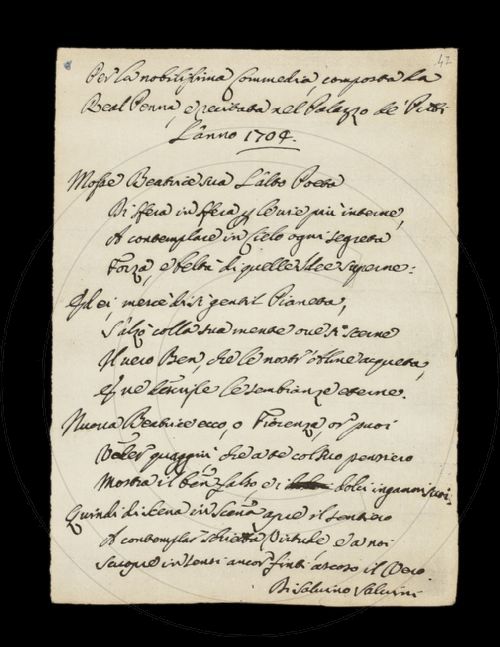 42
Per la nobilissima Commedia, composta da
Real Penna, e recitata nel Palazzo de' Pitti
L'anno 1704.
Mosse Beatrice sua l'alto Poeta
Di sfera in sfera p le vie più interne,
A contemplare in Cielo ogni segreta
Forza, e beltà di quelle Idee superne:
Ed ei, mercè di sì gentil Pianeta,
S'alzò colla sua mente ove si scerne
Il vero Ben, che le nostr' Alme acqueta,
E ne le sembianze eterne.
Nuova Beatrice ecco, o Fiorenza, or puoi
Veder quaggiù, che a te col suo pensiero
Mostra il ben falso, e i dolci inganni suoi,
Quindi di Scena in Scena apre il sentiero
A contemplar Virtude, e a noi
Scuopre in tanti ancor finti ascoso il Vero.
Di Salvino Salvini